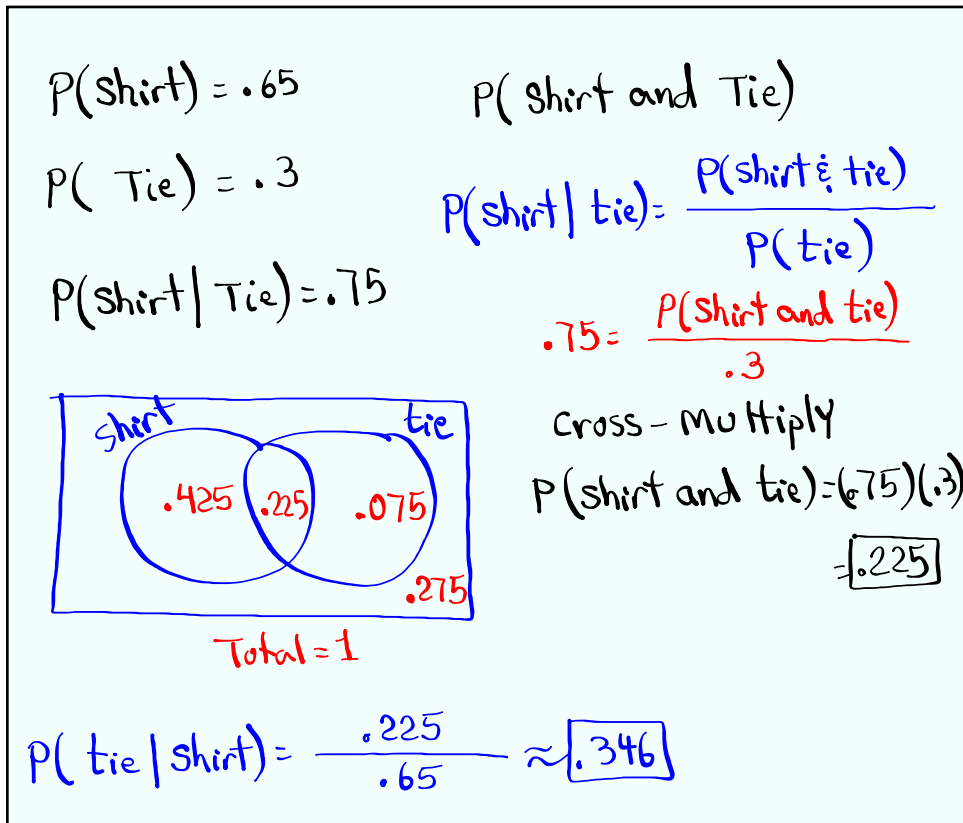 P(Shirt) = .65
P( Tie) = .3
P(Shirt | Tie) = .75
P( Shirt and Tie)
P(shirt | tie) = P(shirt & tie) / P(tie)
.75 = P(Shirt and tie) / .3
Cross-Multiply
P(shirt and tie) = (.75)(.3)
= .225
shirt tie
.425 .225 .075
.275
Total = 1
P( tie | Shirt) = .225 / .65 ≈ .346